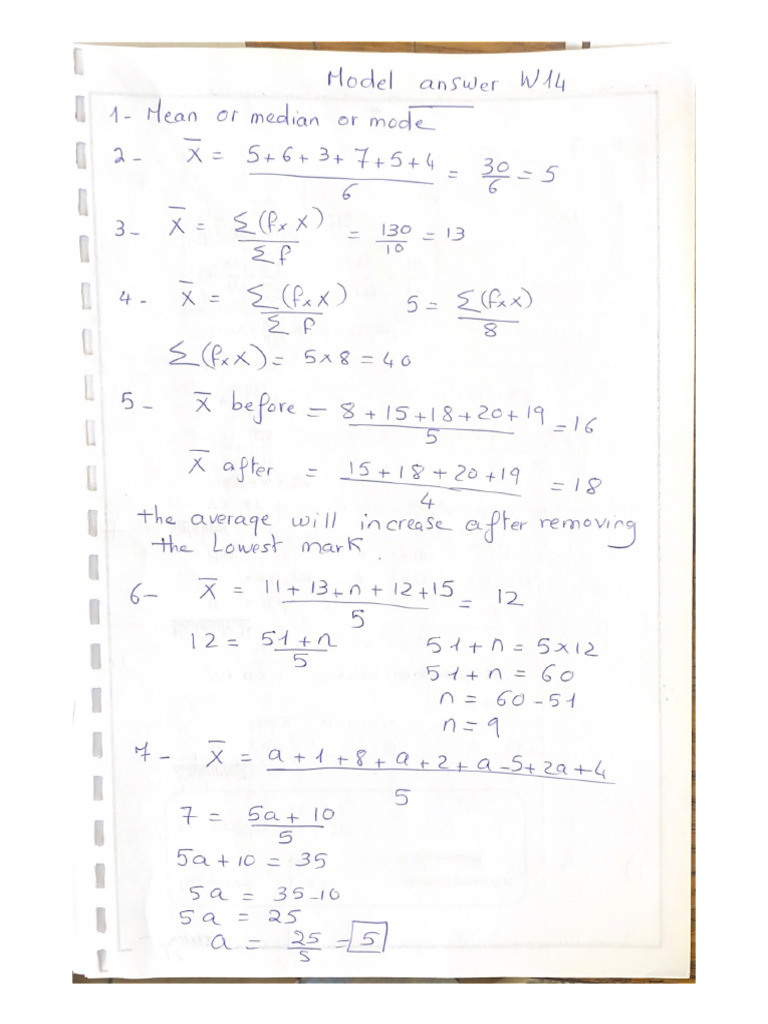 Model answer W14
1- Mean or median or mode
2- X̄ = (5+6+3+7+5+4)/6 = 30/6 = 5
3- X̄ = Σ(fxX)/Σf = 130/10 = 13
4- X̄ = Σ(fxX)/Σf 5 = Σ(fxx)/8
Σ(fxX) = 5x8 = 40
5- X̄ before = (8+15+18+20+19)/5 = 16
X̄ after = (15+18+20+19)/4 = 18
the average will increase after removing
the Lowest mark.
6- X̄ = (11+13+n+12+15)/5 = 12
12 = (51+n)/5 51+n = 5x12
51+n = 60
n = 60-51
n = 9
7- X̄ = (a+1+8+a+2+a-5+2a+4)/5
7 = (5a+10)/5
5a+10 = 35
5a = 35-10
5a = 25
a = 25/5 = 5